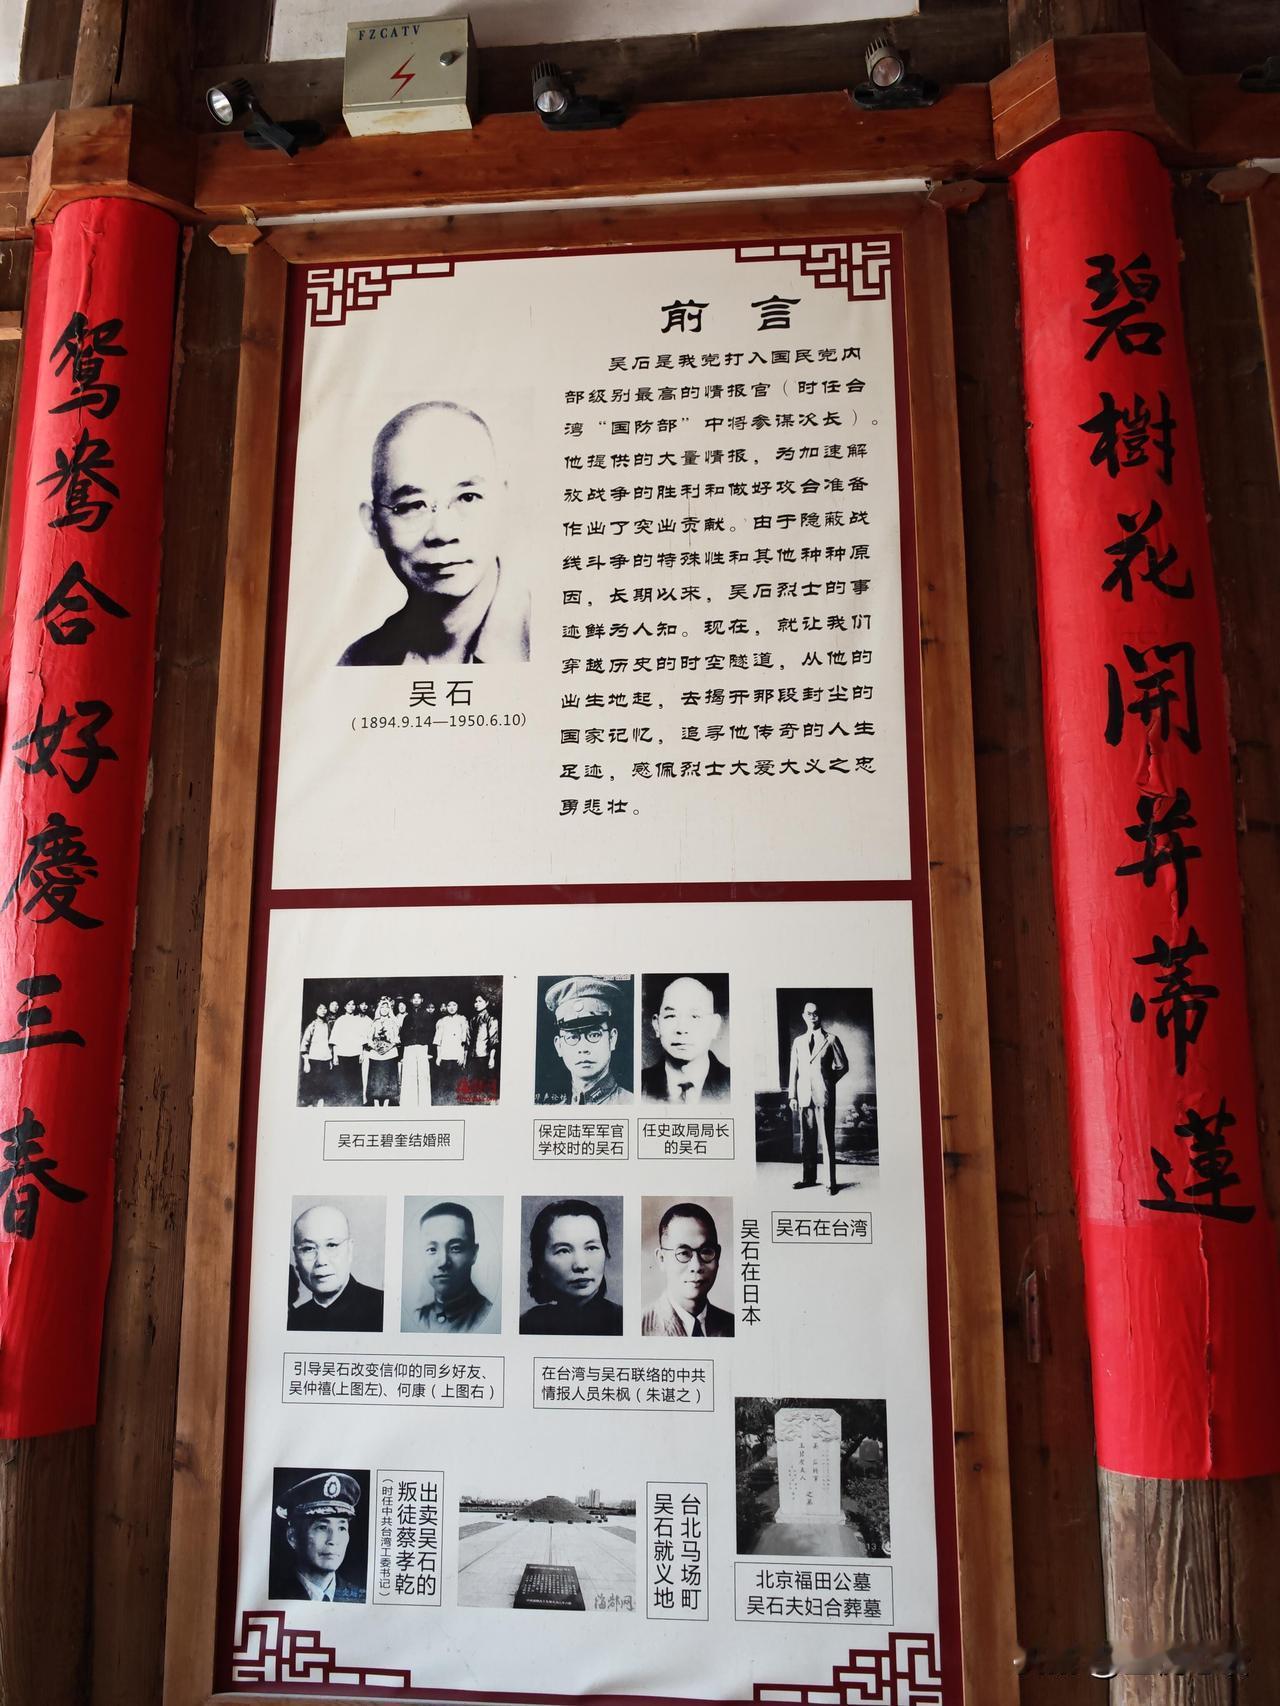 FZCATV
碧樹花開并蒂蓮
鴛鴦合好慶三春
前言
吴石是我党打入国民党内
部级别最高的情报官（时任台
湾“国防部”中将参谋次长）。
他提供的大量情报，为加速解
放战争的胜利和做好攻台准备
作出了突出贡献。由于隐蔽战
线斗争的特殊性和其他种种原
因，长期以来，吴石烈士的事
迹鲜为人知。现在，就让我们
穿越历史的时空隧道，从他的
出生地起，去揭开那段封尘的
国家记忆，追寻他传奇的人生
足迹，感佩烈士大爱大义之忠
勇悲壮。
吴石
（1894.9.14—1950.6.10）
吴石王碧奎结婚照
保定陆军军官
学校时的吴石
任史政局局长
的吴石
吴石在台湾
吴石在日本
引导吴石改变信仰的同乡好友、
吴仲禧(上图左)、何康（上图右）
在台湾与吴石联络的中共
情报人员朱枫（朱谌之）
出卖吴石的
叛徒蔡孝乾
（时任中共台湾工委书记）
海都网
台北马场町
吴石就义地
北京福田公墓
吴石夫妇合葬墓